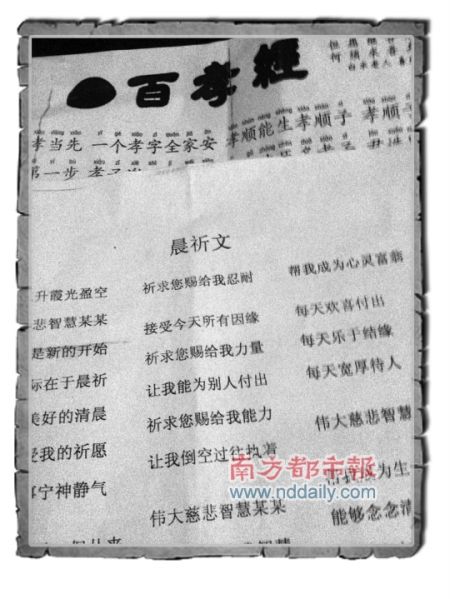 百孝經
孝当先 一个孝字全家安 孝顺能生孝顺子 孝顺
第一步
晨祈文
升霞光盈空 祈求您赐给我忍耐 帮我成为心灵富翁
悲智慧某某 接受今天所有因缘 每天欢喜付出
是新的开始 祈求您赐给我力量 每天乐于结缘
际在于晨祈 让我能为别人付出 每天宽厚待人
美好的清晨 祈求您赐给我能力 伟大慈悲智慧
受我的祈愿 让我倒空过往执着 帮我成为生
宁神静气 伟大慈悲智慧某某 能够念念清
南方都市報
www.nddaily.com